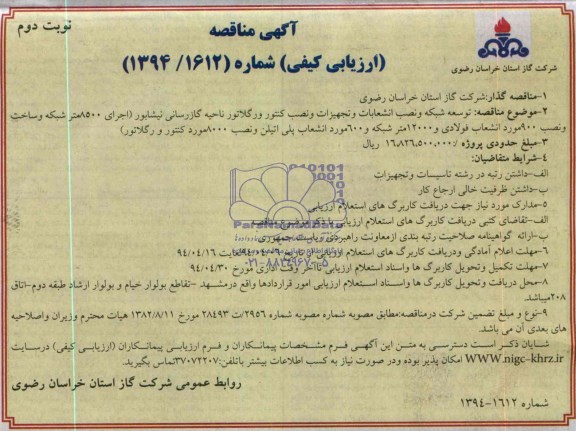 نوبت دوم
آگهی مناقصه
(ارزیابی کیفی) شماره (۱۶۱۲/ ۱۳۹۴)
شرکت گاز استان خراسان رضوی
۱-مناقصه گذار:شرکت گاز استان خراسان رضوی
۲-موضوع مناقصه: توسعه شبکه ونصب انشعابات وتجهیزات ونصب کنتور ورگلاتور ناحیه گازرسانی نیشابور (اجرای ۸۵۰۰متر شبکه وساخت
ونصب ۹۰۰مورد انشعاب فولادی و۱۲۰۰۰متر شبکه و۶۰۰مورد انشعاب پلی اتیلن ونصب ۸۰۰۰مورد کنتور و رگلاتور)
۳-مبلغ حدودی پروژه :۱۶,۸۲۶,۵۰۰,۰۰۰ ریال
۴-شرایط متقاضیان:
الف-داشتن رتبه در رشته تاسیسات وتجهیزات
ب-داشتن ظرفیت خالی ارجاع کار
۵-مدارک مورد نیاز جهت دریافت کاربرگ های استعلام ارزیابی
الف-تقاضای کتبی دریافت کاربرگ های استعلام ارزیابی با ذکر موضوع مناقصه
ب-ارائه گواهینامه صلاحیت رتبه بندی ازمعاونت راهبردی ریاست جمهوری
۶-مهلت اعلام آمادگی ودریافت کاربرگ های استعلام ارزیابی از تاریخ ۹۴/۰۴/۰۶ لغایت ۹۴/۰۴/۱۶
۷-مهلت تکمیل وتحویل کاربرگ ها واسناد استعلام ارزیابی تا آخر وقت اداری مورخ ۹۴/۰۴/۳۰
۸-محل دریافت وتحویل کاربرگ ها واسناد استعلام ارزیابی امور قراردادها واقع درمشهد -تقاطع بولوار خیام و بولوار ارشاد طبقه دوم-اتاق
۲۰۸میباشد.
۹-نوع و مبلغ تضمین شرکت درمناقصه:مطابق مصوبه شماره مصوبه شماره ۲۹۵۶/ت ۲۸۴۹۳ مورخ ۱۳۸۲/۸/۱۱ هیات محترم وزیران واصلاحیه
های بعدی آن می باشد.
شایان ذکر است دسترسی به متن این آگهی فرم مشخصات پیمانکاران و فرم ارزیابی پیمانکاران (ارزیابی کیفی) درسایت
WWW.nigc-khrz.ir امکان پذیر بوده ودر صورت نیاز به کسب اطلاعات بیشتر باتلفن:۳۷۰۷۲۲۰۷تماس بگیرید.
روابط عمومی شرکت گاز استان خراسان رضوی
شماره ۱۶۱۲-۱۳۹۴
ParsNamadData
۰۲۱-۸۸۳۴۹۶۷۰-۵